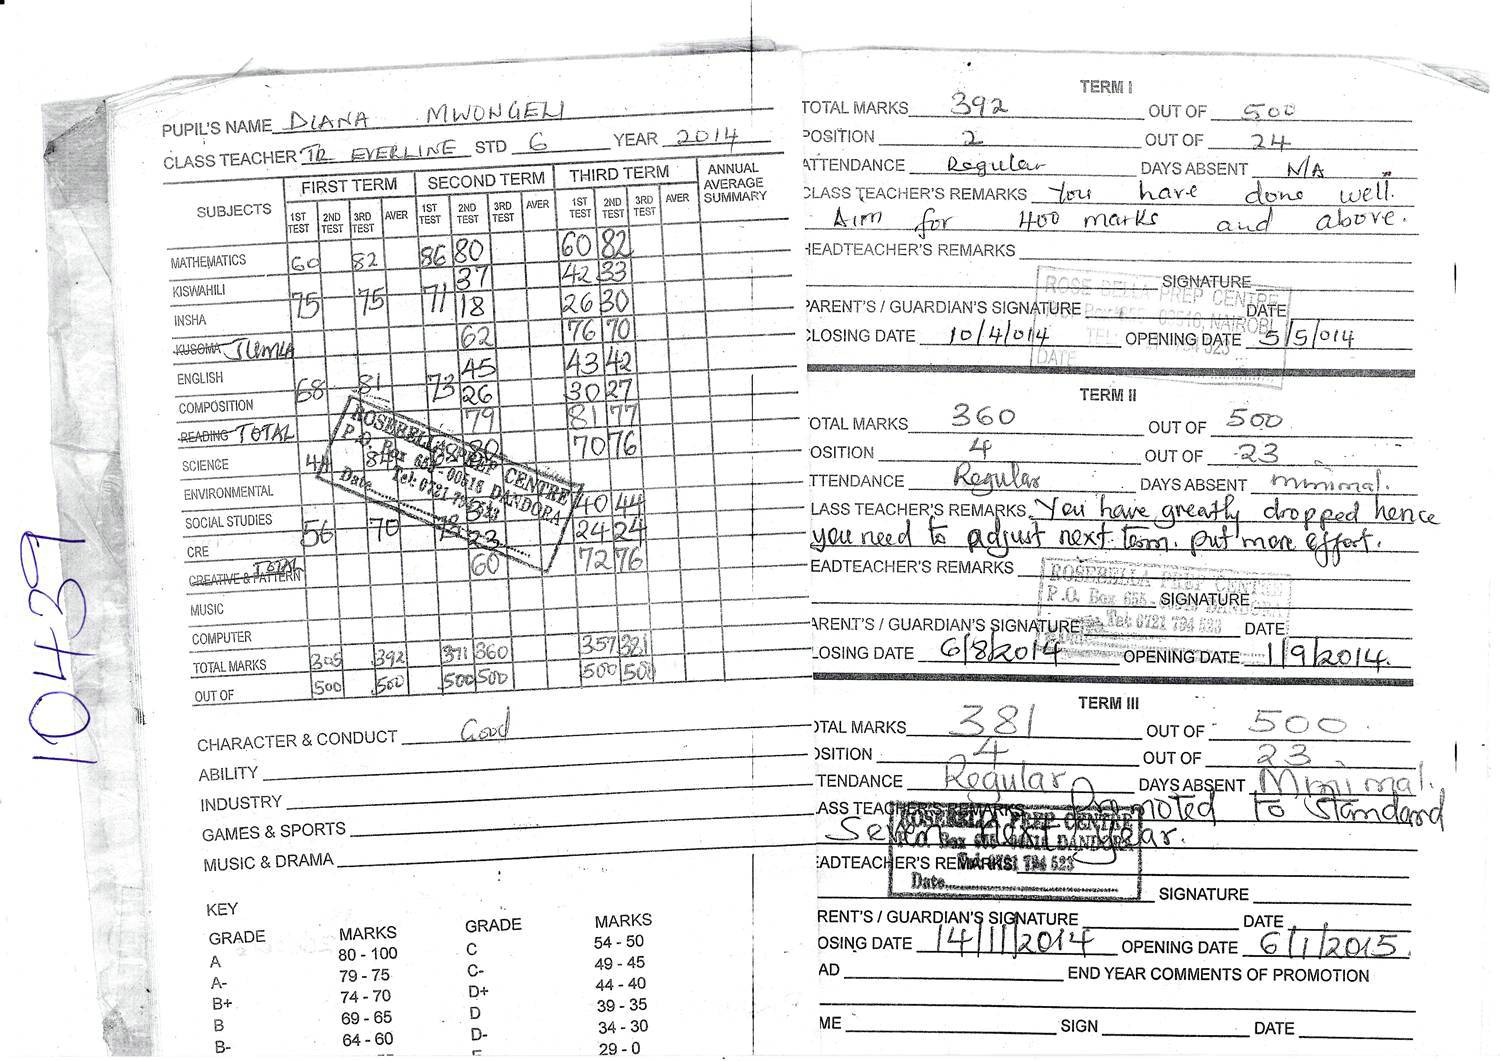 10439
PUPIL'S NAME DIANA MWONGELI
CLASS TEACHER TR EVERLINE STD 6 YEAR 2014
SUBJECTS FIRST TERM SECOND TERM THIRD TERM ANNUAL AVERAGE SUMMARY
1ST TEST 2ND TEST 3RD TEST AVER 1ST TEST 2ND TEST 3RD TEST AVER 1ST TEST 2ND TEST 3RD TEST AVER
MATHEMATICS 60 82 86 80 60 82
KISWAHILI 37 42 33
INSHA 75 75 71 18 26 30
KUSOMA JUMLA 62 76 70
ENGLISH 45 43 42
COMPOSITION 68 81 73 26 30 27
READING TOTAL 79 81 77
SCIENCE 80 70 76
ENVIRONMENTAL
SOCIAL STUDIES 40 44
CRE 56 70 23 24 24
CREATIVE & PATTERN TOTAL 60 72 76
MUSIC
COMPUTER
TOTAL MARKS 305 392 371 360 357 381
OUT OF 500 500 500 500 500 500
ROSEBELLA PREP CENTRE
P.O. Box 655 - 00516 DANDORA
Tel: 0721 794 523
Date
CHARACTER & CONDUCT Good
ABILITY
INDUSTRY
GAMES & SPORTS
MUSIC & DRAMA
KEY
GRADE MARKS GRADE MARKS
A 80 - 100 C 54 - 50
A- 79 - 75 C- 49 - 45
B+ 74 - 70 D+ 44 - 40
B 69 - 65 D 39 - 35
B- 64 - 60 D- 34 - 30
29 - 0
TERM I
TOTAL MARKS 392 OUT OF 500
POSITION 2 OUT OF 24
ATTENDANCE Regular DAYS ABSENT N/A
CLASS TEACHER'S REMARKS You have done well.
Aim for 400 marks and above.
HEADTEACHER'S REMARKS
SIGNATURE
ROSE BELLA PREP CENTRE
PARENT'S / GUARDIAN'S SIGNATURE DATE
CLOSING DATE 10/4/014 OPENING DATE 5/5/014
TERM II
OTAL MARKS 360 OUT OF 500
OSITION 4 OUT OF 23
TTENDANCE Regular DAYS ABSENT minimal.
LASS TEACHER'S REMARKS You have greatly dropped hence
you need to adjust next term. put more effort.
EADTEACHER'S REMARKS
ROSEBELLA PREP CENTRE
P.O. Box 655
SIGNATURE
Tel: 0721 794 523
ARENT'S / GUARDIAN'S SIGNATURE DATE
LOSING DATE 6/8/2014 OPENING DATE 1/9/2014.
TERM III
OTAL MARKS 381 OUT OF 500
OSITION 4 OUT OF 23
TENDANCE Regular DAYS ABSENT Minimal.
ASS TEACHER'S REMARKS Promoted to Standard
Seven Next Year.
ROSEBELLA PREP CENTRE
P.O. Box 655 - 00516 DANDORA
Tel: 0721 794 523
Date
EADTEACHER'S REMARKS
SIGNATURE
RENT'S / GUARDIAN'S SIGNATURE DATE
OSING DATE 14/11/2014 OPENING DATE 6/1/2015.
AD END YEAR COMMENTS OF PROMOTION
ME SIGN DATE